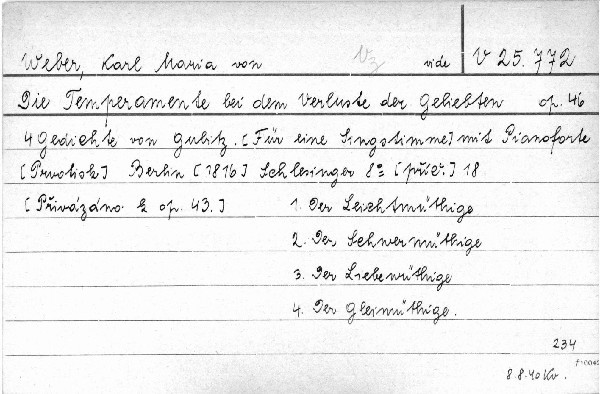 Weber, Karl Maria von V3 vide V 25.772
Die Temperamente bei dem Verluste der Geliebten op. 46
4 Gedichte von Gubitz. [Für eine Singstimme] mit Pianoforte
[Prvotisk] Berlin [1816] Schlesinger 8° [příč.] 18
[Přivázáno k op. 43.] 1. Der Leichtmüthige
2. Der Schwermüthige
3. Der Liebewüthige
4. Der Gleimüthige.
234
8.8.40 Kv.